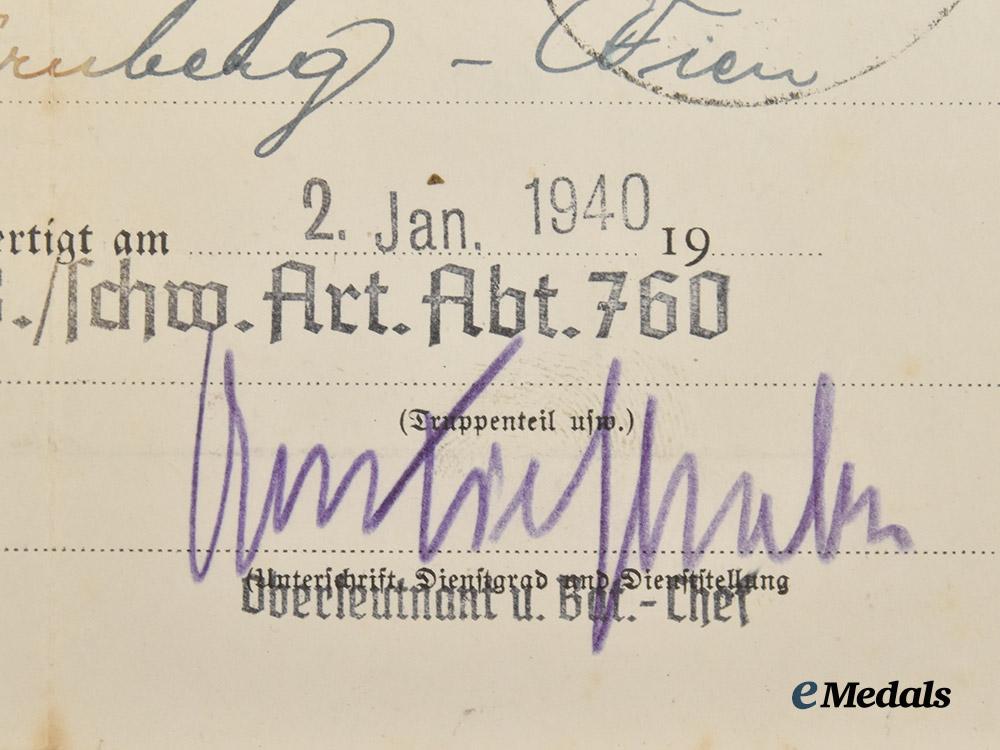 – Wien
ertigt am 2. Jan. 1940 19
./schw. Art. Abt. 760
(Truppenteil usw.)
(Unterschrift, Dienstgrad und Dienststellung
Oberleutnant u. Bat.-Chef
eMedals